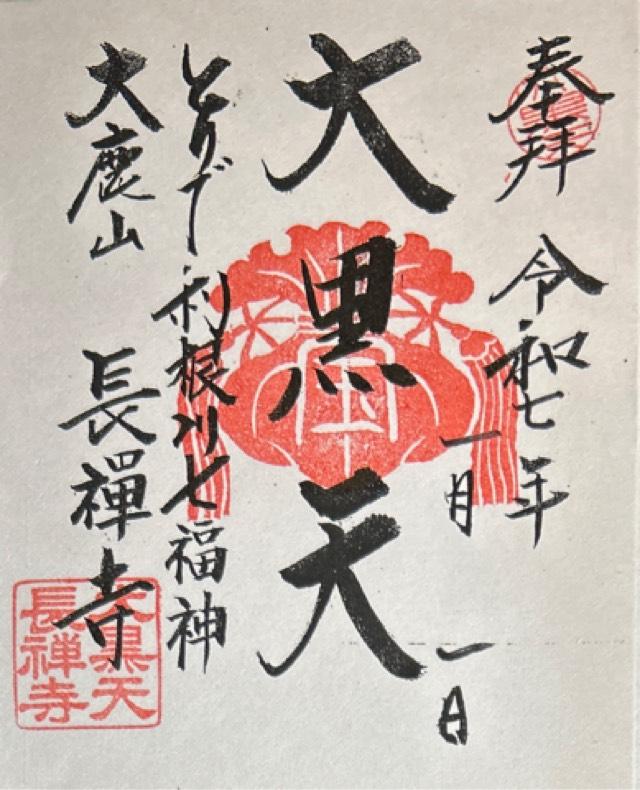 奉拝
令和七年
一月
一日
大黒天
とりで利根川七福神
大鹿山
長禪寺
大黒天
長禅寺
宝